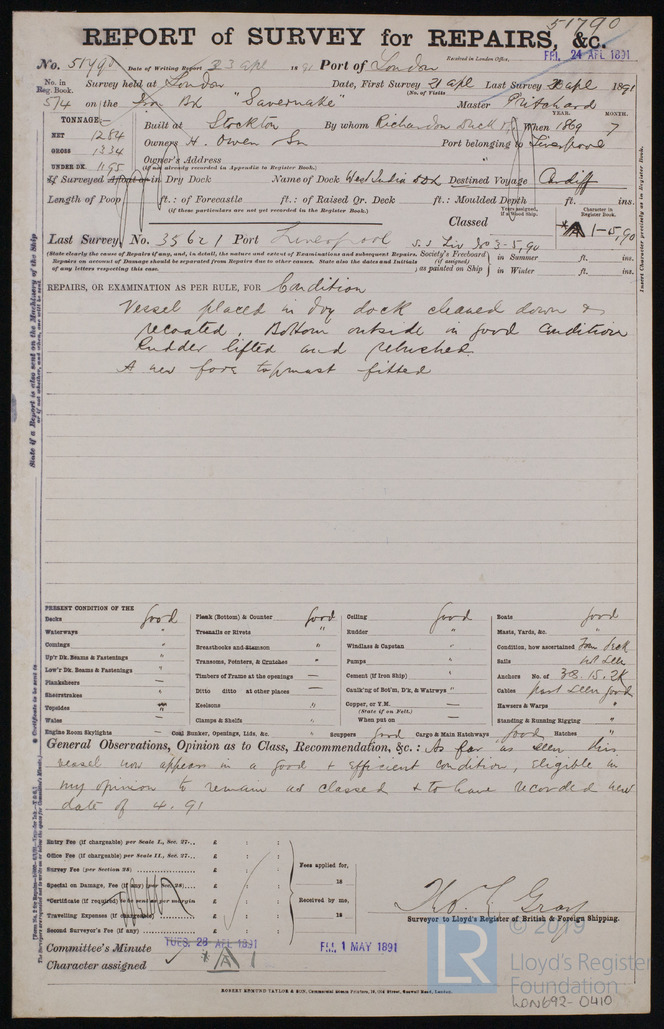 51790
REPORT of SURVEY for REPAIRS, &c.
Received in London Office, FRI. 24 APL 1891
No. 51790 Date of Writing Report 23 Apl 1891 Port of London
No. in Reg. Book. Survey held at London Date, First Survey 21 Apl Last Survey apl 1891
(No. of Visits
514 on the Iron Bk "Savernake" Master Pritchard
TONNAGE:— YEAR. MONTH.
NET 1284 Built at Stockton By whom Richardson Duck When 1869 7
GROSS 1334 Owners H. Owen & Son Port belonging to Liverpool
UNDER DK. 1195 Owner's Address
(If not already recorded in Appendix to Register Book.)
If Surveyed Afloat or in Dry Dock Name of Dock West India Dk Destined Voyage Cardiff
Length of Poop ft.: of Forecastle ft.: of Raised Qr. Deck ft.: Moulded Depth ft. ins.
(If these particulars are not yet recorded in the Register Book.)
Years assigned, if a Wood Ship. Character in Register Book.
Classed A 1-5,90
Last Survey, No. 35621 Port Liverpool
(State clearly the cause of Repairs, if any, and, in detail, the nature and extent of Examinations and subsequent Repairs. Repairs on account of Damage should be separated from Repairs due to other causes. State also the dates and Initials of any letters respecting this case.
Society's Freeboard (if assigned) as painted on Ship in Summer ft. ins.
in Winter ft. ins.
REPAIRS, OR EXAMINATION AS PER RULE, FOR Condition
Vessel placed in dry dock cleaned down &
recoated. Bottom outside in good condition
Rudder lifted and rebushed
A new fore topmast fitted
PRESENT CONDITION OF THE
Decks good Plank (Bottom) & Counter good Ceiling good Boats good
Waterways " Treenails or Rivets " Rudder " Masts, Yards, &c. "
Comings " Breasthooks and Stemson " Windlass & Capstan " Condition, how ascertained From deck
Up'r Dk. Beams & Fastenings " Transoms, Pointers, & Crutches " Pumps " Sails not seen
Low'r Dk. Beams & Fastenings — Timbers of Frame at the openings — Cement (if Iron Ship) " Anchors No. of 3B. 1S. 2K
Planksheers — Ditto ditto at other places — Caulk'ng of Bot'm, D'k, & Waterw'ys " Cables part seen good
Sheerstrakes " Keelsons " Copper, or Y.M. — Hawsers & Warps "
Topsides (State if on Felt.)
Wales — Clamps & Shelfs " When put on — Standing & Running Rigging "
Engine Room Skylights — Coal Bunker, Openings, Lids, &c. Scuppers good Cargo & Main Hatchways good Hatches "
General Observations, Opinion as to Class, Recommendation, &c.: As far as seen this
vessel now appears in a good & efficient condition, eligible in
my opinion to remain as classed & to have recorded new
date of 4.91
Entry Fee (if chargeable) per Scale I., Sec. 27... £ : :
Office Fee (if chargeable) per Scale II., Sec. 27... £ : :
Survey Fee (per Section 28) £ : :
Special on Damage, Fee (if any) (per Sec. 28) £ : :
*Certificate (if required) to be sent as per margin
Travelling Expenses (if chargeable) £ : :
Second Surveyor's Fee (if any) £ : :
Fees applied for,
18
Received by me,
18
Surveyor to Lloyd's Register of British & Foreign Shipping.
Committee's Minute TUES. 28 APL 1891 FRI. 1 MAY 1891
Character assigned A 1
ROBERT EDMUND TAYLOR & SON, Commercial Steam Printers, 19, Old Street, Goswell Road, London.
© 2019
LR Lloyd's Register
Foundation
LON692-0410
Insert Character precisely as in Register Book.
State if a Report is also sent on the Machinery of the Ship